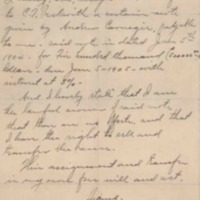 to C.T. Beckwith a certain note
given by Andrew Carnegie, payable
to me - said note is dated June 5th
1904 - for five hundred thousand
Dollars - due June 5 - 1905 - with
interest at 5%.
And I hereby state that I am
the lawful owner of said note,
that there are no offsets, and that
I have the right to sell and
transfer the same.
This assignment and transfer
is my own free will and act.
Signed